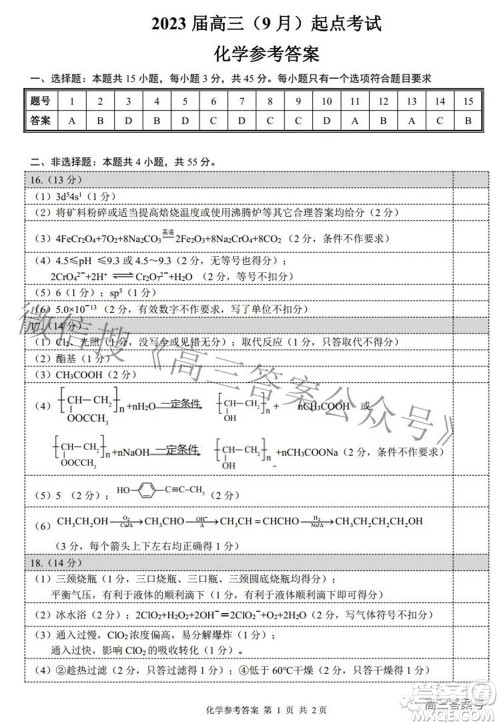 2023 届高三（9 月）起点考试
化学参考答案
一、选择题：本题共 15 小题，每小题 3 分，共 45 分。每小题只有一个选项符合题目要求
题号 1 2 3 4 5 6 7 8 9 10 11 12 13 14 15
答案 A B D B C D D B C B A B A C B
二、非选择题：本题共 4 小题，共 55 分。
16.（13 分）
（1）3d⁵4s¹（1 分）
（2）将矿料粉碎或适当提高焙烧温度或使用沸腾炉等其它合理答案均给分（2 分）
（3）4FeCr₂O₄+7O₂+8Na₂CO₃ 高温 2Fe₂O₃+8Na₂CrO₄+8CO₂（2 分，条件不作要求）
（4）4.5≤pH ≤9.3 或 4.5～9.3（2 分，无等号也得分）；
2CrO₄²⁻+2H⁺ ⇌ Cr₂O₇²⁻+H₂O （2 分，等号不扣分）
（5）6（1 分）；sp³（1 分）
（6）5.0×10⁻¹³（2 分，有效数字不作要求，写了单位不扣分）
17.（14 分）
（1）Cl₂、光照（1 分，没写全或见错无分）；取代反应（1 分，只答取代不得分）
（2）酯基（1 分）
（3）CH₃COOH（2 分）
（4）[CH－CH₂]n +nH₂O 一定条件 [CH－CH₂]n + nCH₃COOH 或
OOCCH₃ OH
[CH－CH₂]n +nNaOH 一定条件 [CH－CH₂]n +nCH₃COONa（2 分，条件不作要求）
OOCCH₃ OH
（5）5 （2 分）； HO－ －C≡C－CH₃（2 分）
（6）CH₃CH₂OH O₂ Cu/Δ → CH₃CHO OH⁻ Δ → CH₃CH＝CHCHO H₂ Ni/Δ → CH₃CH₂CH₂CH₂OH
（3 分，每个箭头上下左右均正确得 1 分）
18.（14 分）
（1）三颈烧瓶（1 分，三口烧瓶、三口瓶、三颈圆底烧瓶均得分）；
平衡气压，有利于液体的顺利滴下（1 分，有利于液体顺利滴下得 1 分）
（2）冰水浴（2 分）；2ClO₂+H₂O₂+2OH⁻＝2ClO₂⁻+O₂+2H₂O（2 分，写气体符号不扣分）
（3）通入过慢，ClO₂浓度偏高，易分解爆炸（1 分）；
通入过快，影响 ClO₂的吸收转化（1 分）。
（4）②趁热过滤（2 分，只答过滤得 1 分）；④低于 60℃干燥（2 分，只答干燥得 1 分）
化学参考答案 第 1 页 共 2 页
微信搜《高三答案公众号》
高三答案号